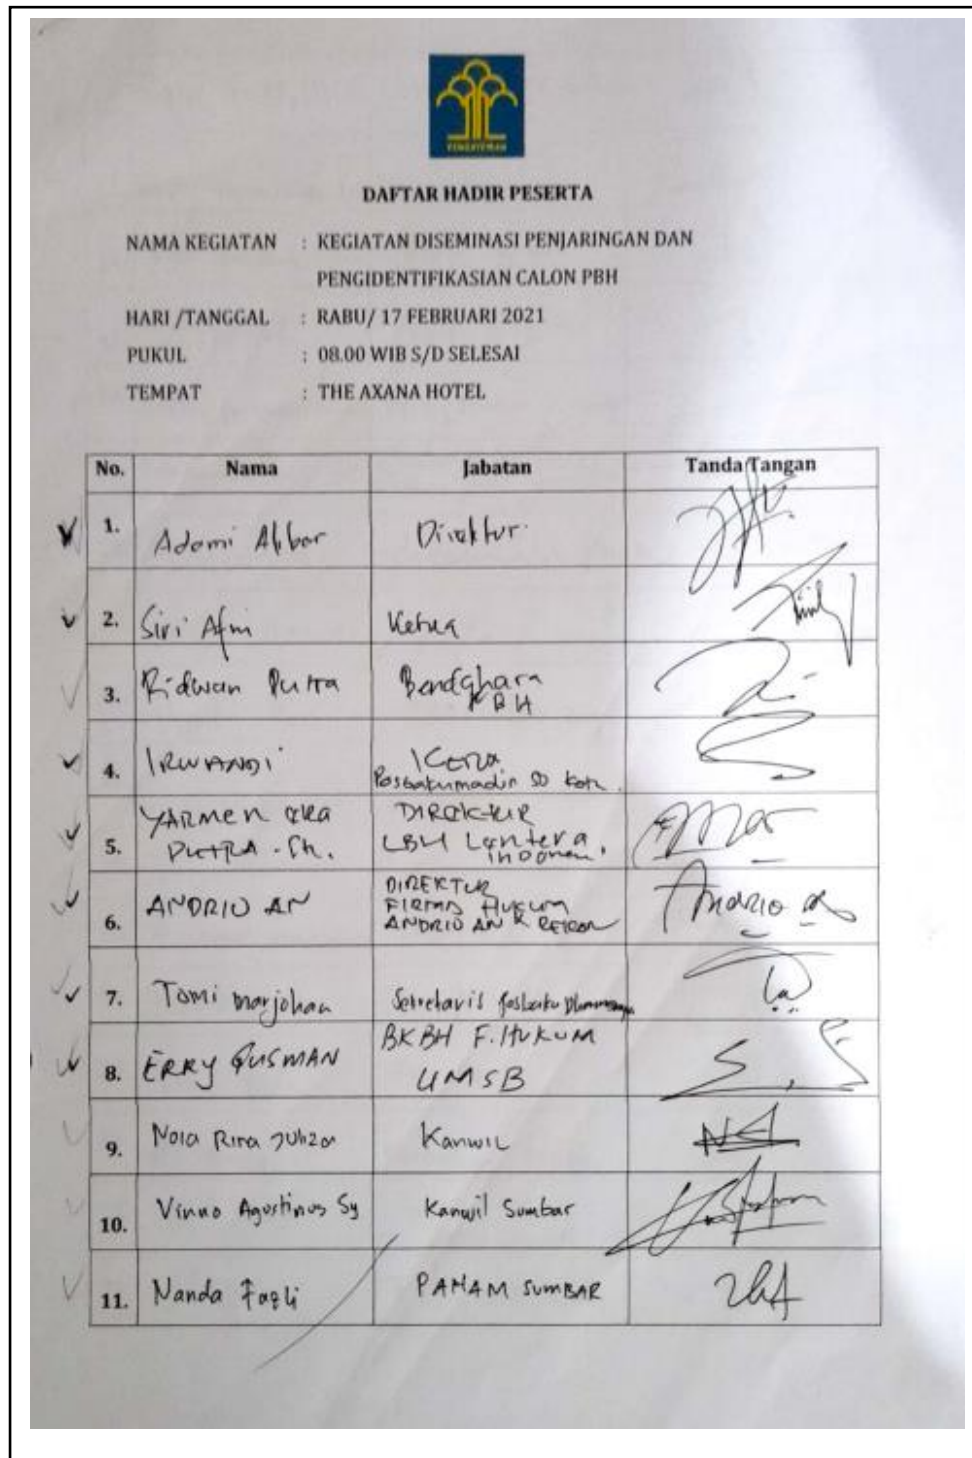 PENGAYOMAN
DAFTAR HADIR PESERTA
NAMA KEGIATAN : KEGIATAN DISEMINASI PENJARINGAN DAN
PENGIDENTIFIKASIAN CALON PBH
HARI /TANGGAL : RABU/ 17 FEBRUARI 2021
PUKUL : 08.00 WIB S/D SELESAI
TEMPAT : THE AXANA HOTEL
No. Nama Jabatan Tanda Tangan
1. Adami Akbar Direktur
2. Siri Afni Ketua
3. Ridwan Putra Bendahara
KBH
4. IRWANDI Ketua
5. YARMEN EKA DIREKTUR
PUTRA . Sh. LBH Lentera
6. ANDRIO AN DIREKTUR
FIRMA HUKUM
ANDRIO AN &
Andrio an
7. Tomi marjohan Sekretaris
8. ERRY GUSMAN BKBH F. HUKUM
UMSB
9. Nola Rira Kanwil
10. Vinno Agustinus Sy Kanwil Sumbar
11. Nanda Fazli PAHAM SUMBAR